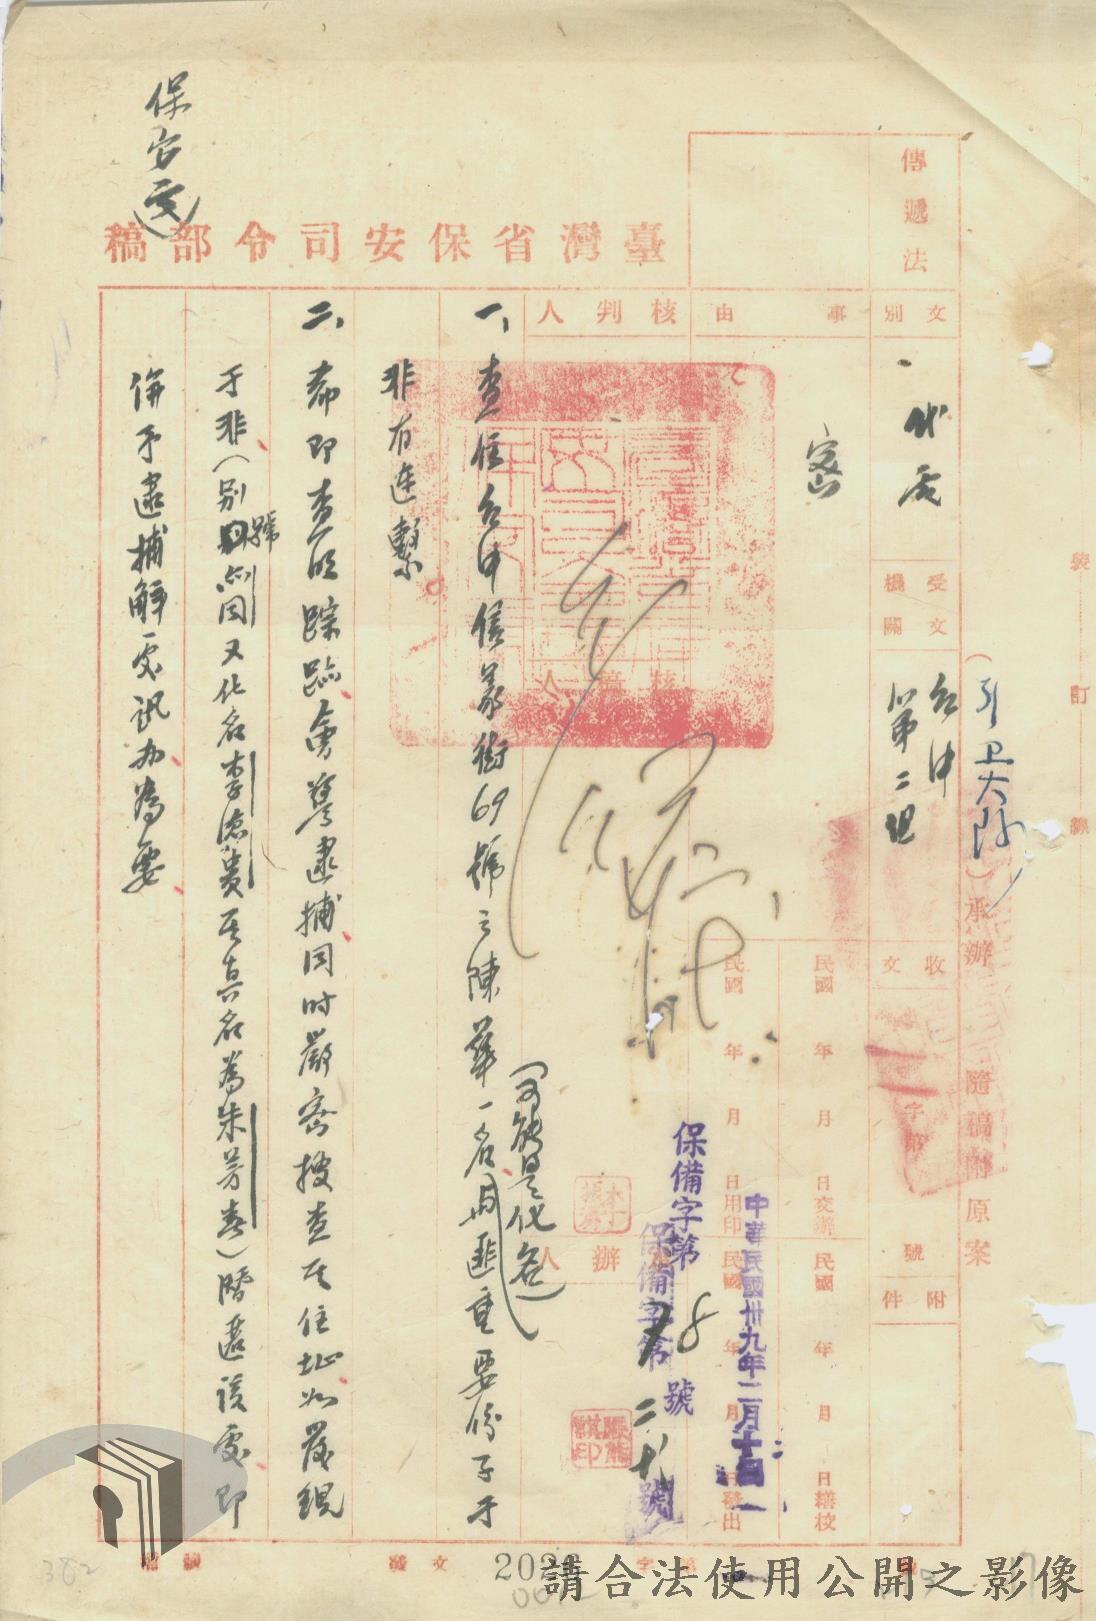 保安處
臺灣省保安司令部稿
傳遞法
文別
代電
受文機關
台中
第二組
事由
密
核判人
核稿人
（引卫大隊）承辦
隨稿附原案
裝訂線
收文
字第
號
附件
民國 年 月 日交辦
民國 年 月 日繕校
民國 年 月 日用印
民國 年 月 日發出
中華民國卅九年二月十
保備字第 78 號
保備字第 號
辦 人
一、查住台中信義街69號之陳華一名與匪重要份子于
（可能是化名）
非有連繫
二、希即查明踪跡會警逮捕同時嚴密搜查其住址如發現
于非（別號 同又化名李德貴其真名為朱芳春）潛匿該處即
併予逮捕解處訊办為要
382
請合法使用公開之影像